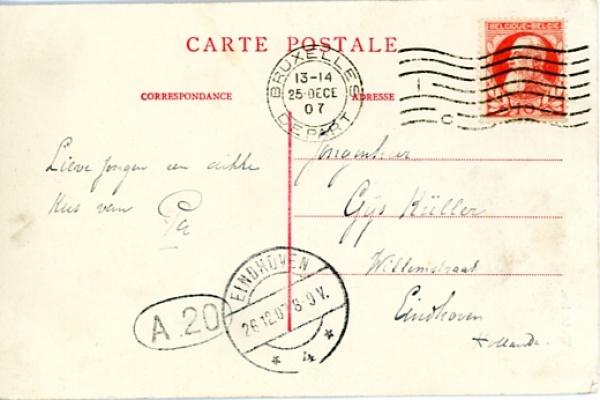 CARTE POSTALE
CORRESPONDANCE
ADRESSE
BRUXELLES
13-14
25 DECE
07
DEPART
1
C
BELGIQUE-BELGIË
10
Lieve Jongen een dikke
Kus van Pa
Jongenheer
Gijs Küller
Willemstraat
Eindhoven
Hollande.
EINDHOVEN
26.12.07 8-9 V.
4
A.20